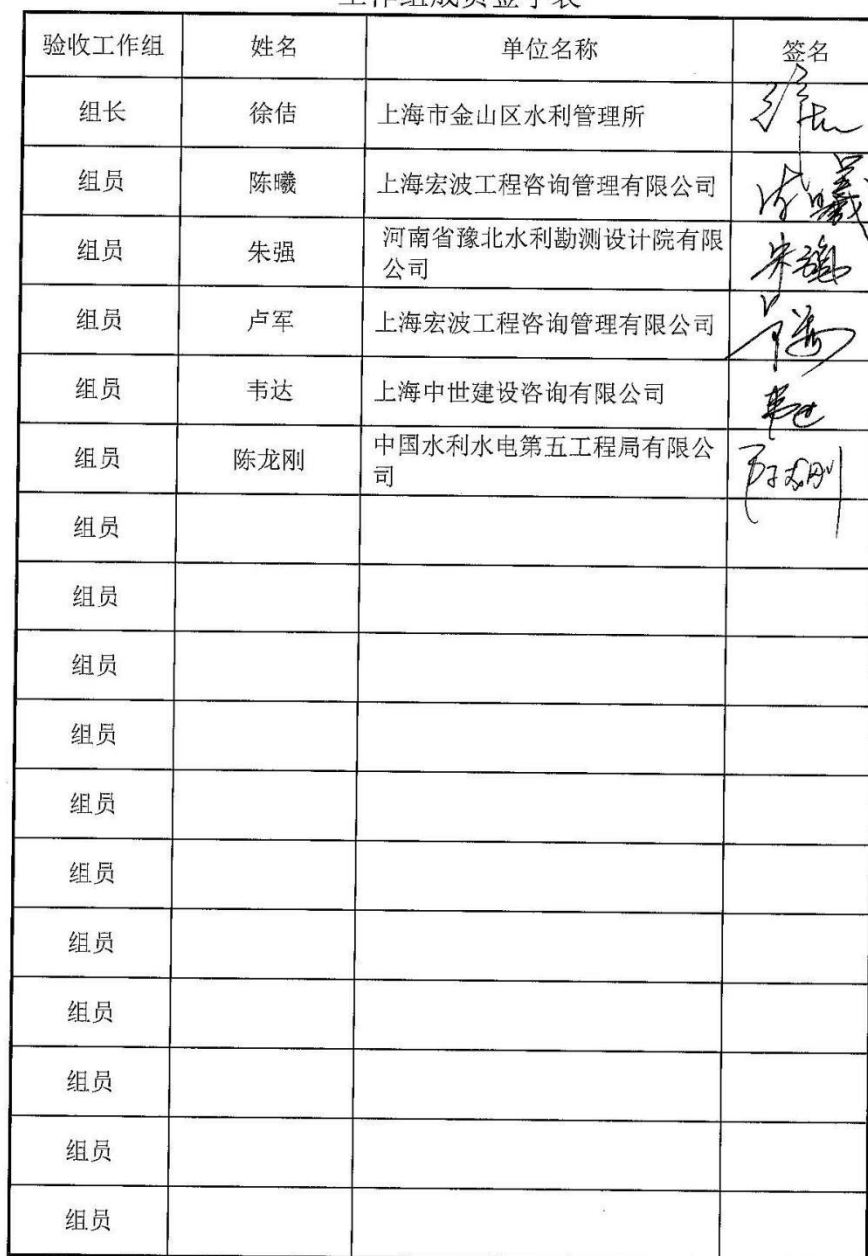 工作组成员签字表
验收工作组 姓名 单位名称 签名
组长 徐佶 上海市金山区水利管理所
组员 陈曦 上海宏波工程咨询管理有限公司 陈曦
组员 朱强 河南省豫北水利勘测设计院有限
公司 朱强
组员 卢军 上海宏波工程咨询管理有限公司
组员 韦达 上海中世建设咨询有限公司 韦达
组员 陈龙刚 中国水利水电第五工程局有限公
司 陈龙刚
组员
组员
组员
组员
组员
组员
组员
组员
组员
组员
组员